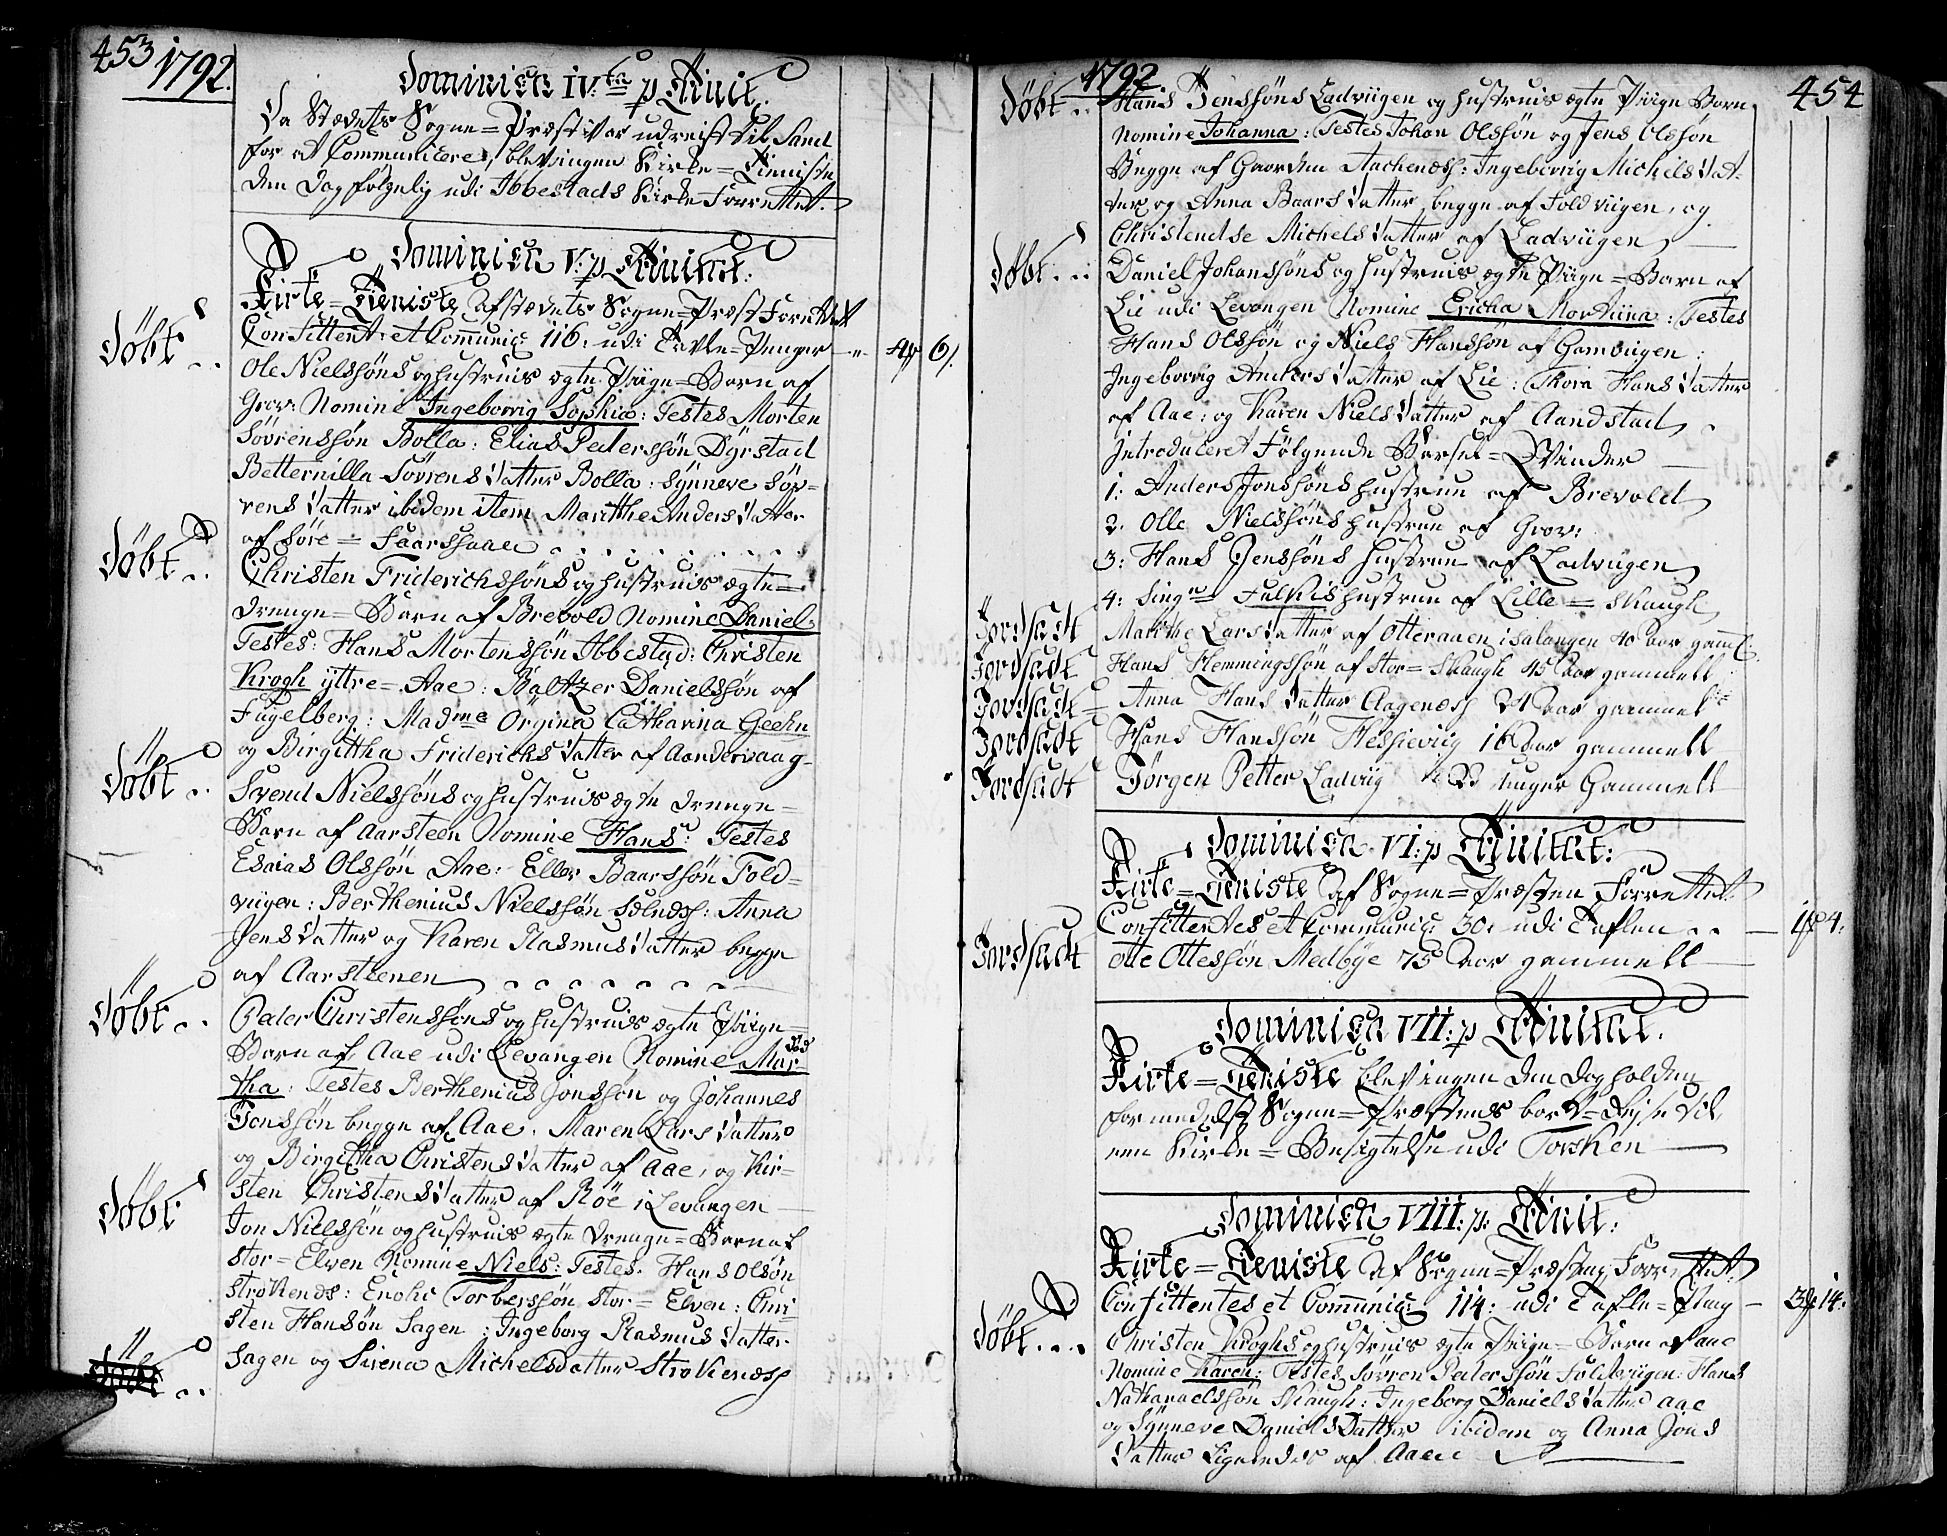 453 1792.
Dominica IV.ta p Trinit.
Da Stædets Sogne=Præst var udreist til Sand
for at Communicere, blev ingen Kirke=Tieniste
den Dag følgelig udi Ibbestads Kirke Forrettet.
Dominica V: p Trinitat:
Kirke=Tieniste af stædets Sogne=Præst Forrettet
Confittent: et Communic: 116: udi Tavle=Penger 4 6
Døbt .. Ole Nielssøns og hustrues ægte Piige=Barn af
Grov: Nomine Ingeborrig Sophia: Testes Morten
Sörenssøn Bolla: Elias Pederssøn Dÿrstad
Betternilla Sövrens Datter Bolla: Sÿnneve Söv-
rens Datter ibidem item Marithe Anders Datter
af Söre=Faarssaae
Døbt .. Christen Friderichssøns og hustrues ægte=
Drenge=Barn af Brevold Nomine Daniel:
Testes: Hans Mortenssøn Ibbestad: Christen
Krogh ÿttre=Aae: Baltzer Danielssøn af
Fugelberg: Madme Örgina Catharina Geehn
og Birgittha Friderichs Datter af Aandervaag
Døbt .. Svend Nielssøns og hustrues ægte Drenge=
Barn af Aarsteen Nomine Hans: Testes
Esaias Olssøn Aae: Eller Baarssøn Fold=
viigen: Berthenius Nielssøn : Anna
Jens Datter og Karen Rasmus Datter begge
af Aarsteenen
Døbt .. Peder Christenssøns og hustrues ægte Piige
Barn af Aae udi Levangen Nomine Mar-
tha: Testes Berthenius Jonssøn og Johannes
Jonssøn begge af Aae. Maren Lars Datter
og Birgitha Christens Datter af Aae, og Kir-
sten Christens Datter af Röe i Levangen
Døbt Jon Nielssøn og hustrues ægte Drenge=Barn af
Stor=Elven Nomine Niels: Testes. Hans Olsøn
Strokends: Enokc Torberssøn Stor=Elven: Chri-
sten Hansøn Sagen: Ingeborg Rasmus Datter
Sagen og Sirena Michelsdatter Strokenæss
1792 454
Døbt .. Hans Jenssøns Ladviigen og hustrues ægte Piige Barn
Nomine Johanna: Testes Johan Olssøn og Jens Olssøn
Begge af Gaarden Aachenæss: Ingeborrig Michels Dat-
ter og Anna Baars Datter begge af Foldviigen, og
Christendse Michels Datter af Ladviigen
Døbt ... Daniel Johanssøns og hustrues ægte Piige=Barn af
Lie udi Levangen Nomine Ericha Mortiina: Testes
Hans Olssøn og Niels Hanssøn af Gamviigen:
Ingeborrig Anders Datter af Lie: Thora Hans Datter
af Aae: og Karen Niels Datter af Aandstad
Introduceret Følgende Barsel=Qvinder
1: Anders Jonssøns hustrue af Brevold
2. Olle Nielssøns hustrue af Grov:
3: Hans Jenssøns hustrue af Ladviigen
4: Singr Falkis hustrue af Lille=Skaugh
Jordfædt Marthe Lars Datter af Otteraaen i Salangen 40 Aar gaml.
Jordfædt Hans Flemmingssøn af Stor=Skaugh 45 Aar gammell
Jordfædt Anna Hans Datter Aagenæss 24 Aar gammel
Jordfædt Hans Hanssøn Hessieviig 16 Aar gammell
Jordfædt Jørgen Petter Ladviig uger Gammell
Dominica VI: p Trinitat:
Kirke=Tieniste af Sogne=Præsten Forrettet.
Confittentes et Communic: 30: udi Taflen .. 1 4:
Jordfædt Otte Ottessøn Medbÿe 75 Aar gammell
Dominica VII: p Trinitat.
Kirke=Tieniste blev ingen den Dag holden
formedelst Sogne=Præstens bort=Rejse til
een Kirke=Besigtelse udi Torsken
Dominica VIII: p: Trinit:
Kirke=Tieniste af Sogne=Præsten Forrettet.
Confittentes et Communic: 114: udi Tafle=Peng 3 14:
Døbt ... Christen Kroghs og hustrues ægte Piige=Barn af Aae
Nomine Karen: Testes Sövren Pederssøn Foldviigen: Hans
Nathanaelssøn Skaugh: Ingeborg Daniels Datter Aae
og Sÿnneve Daniels Datter ibidem og Anna Jons
Datter Ligeledes af Aaen